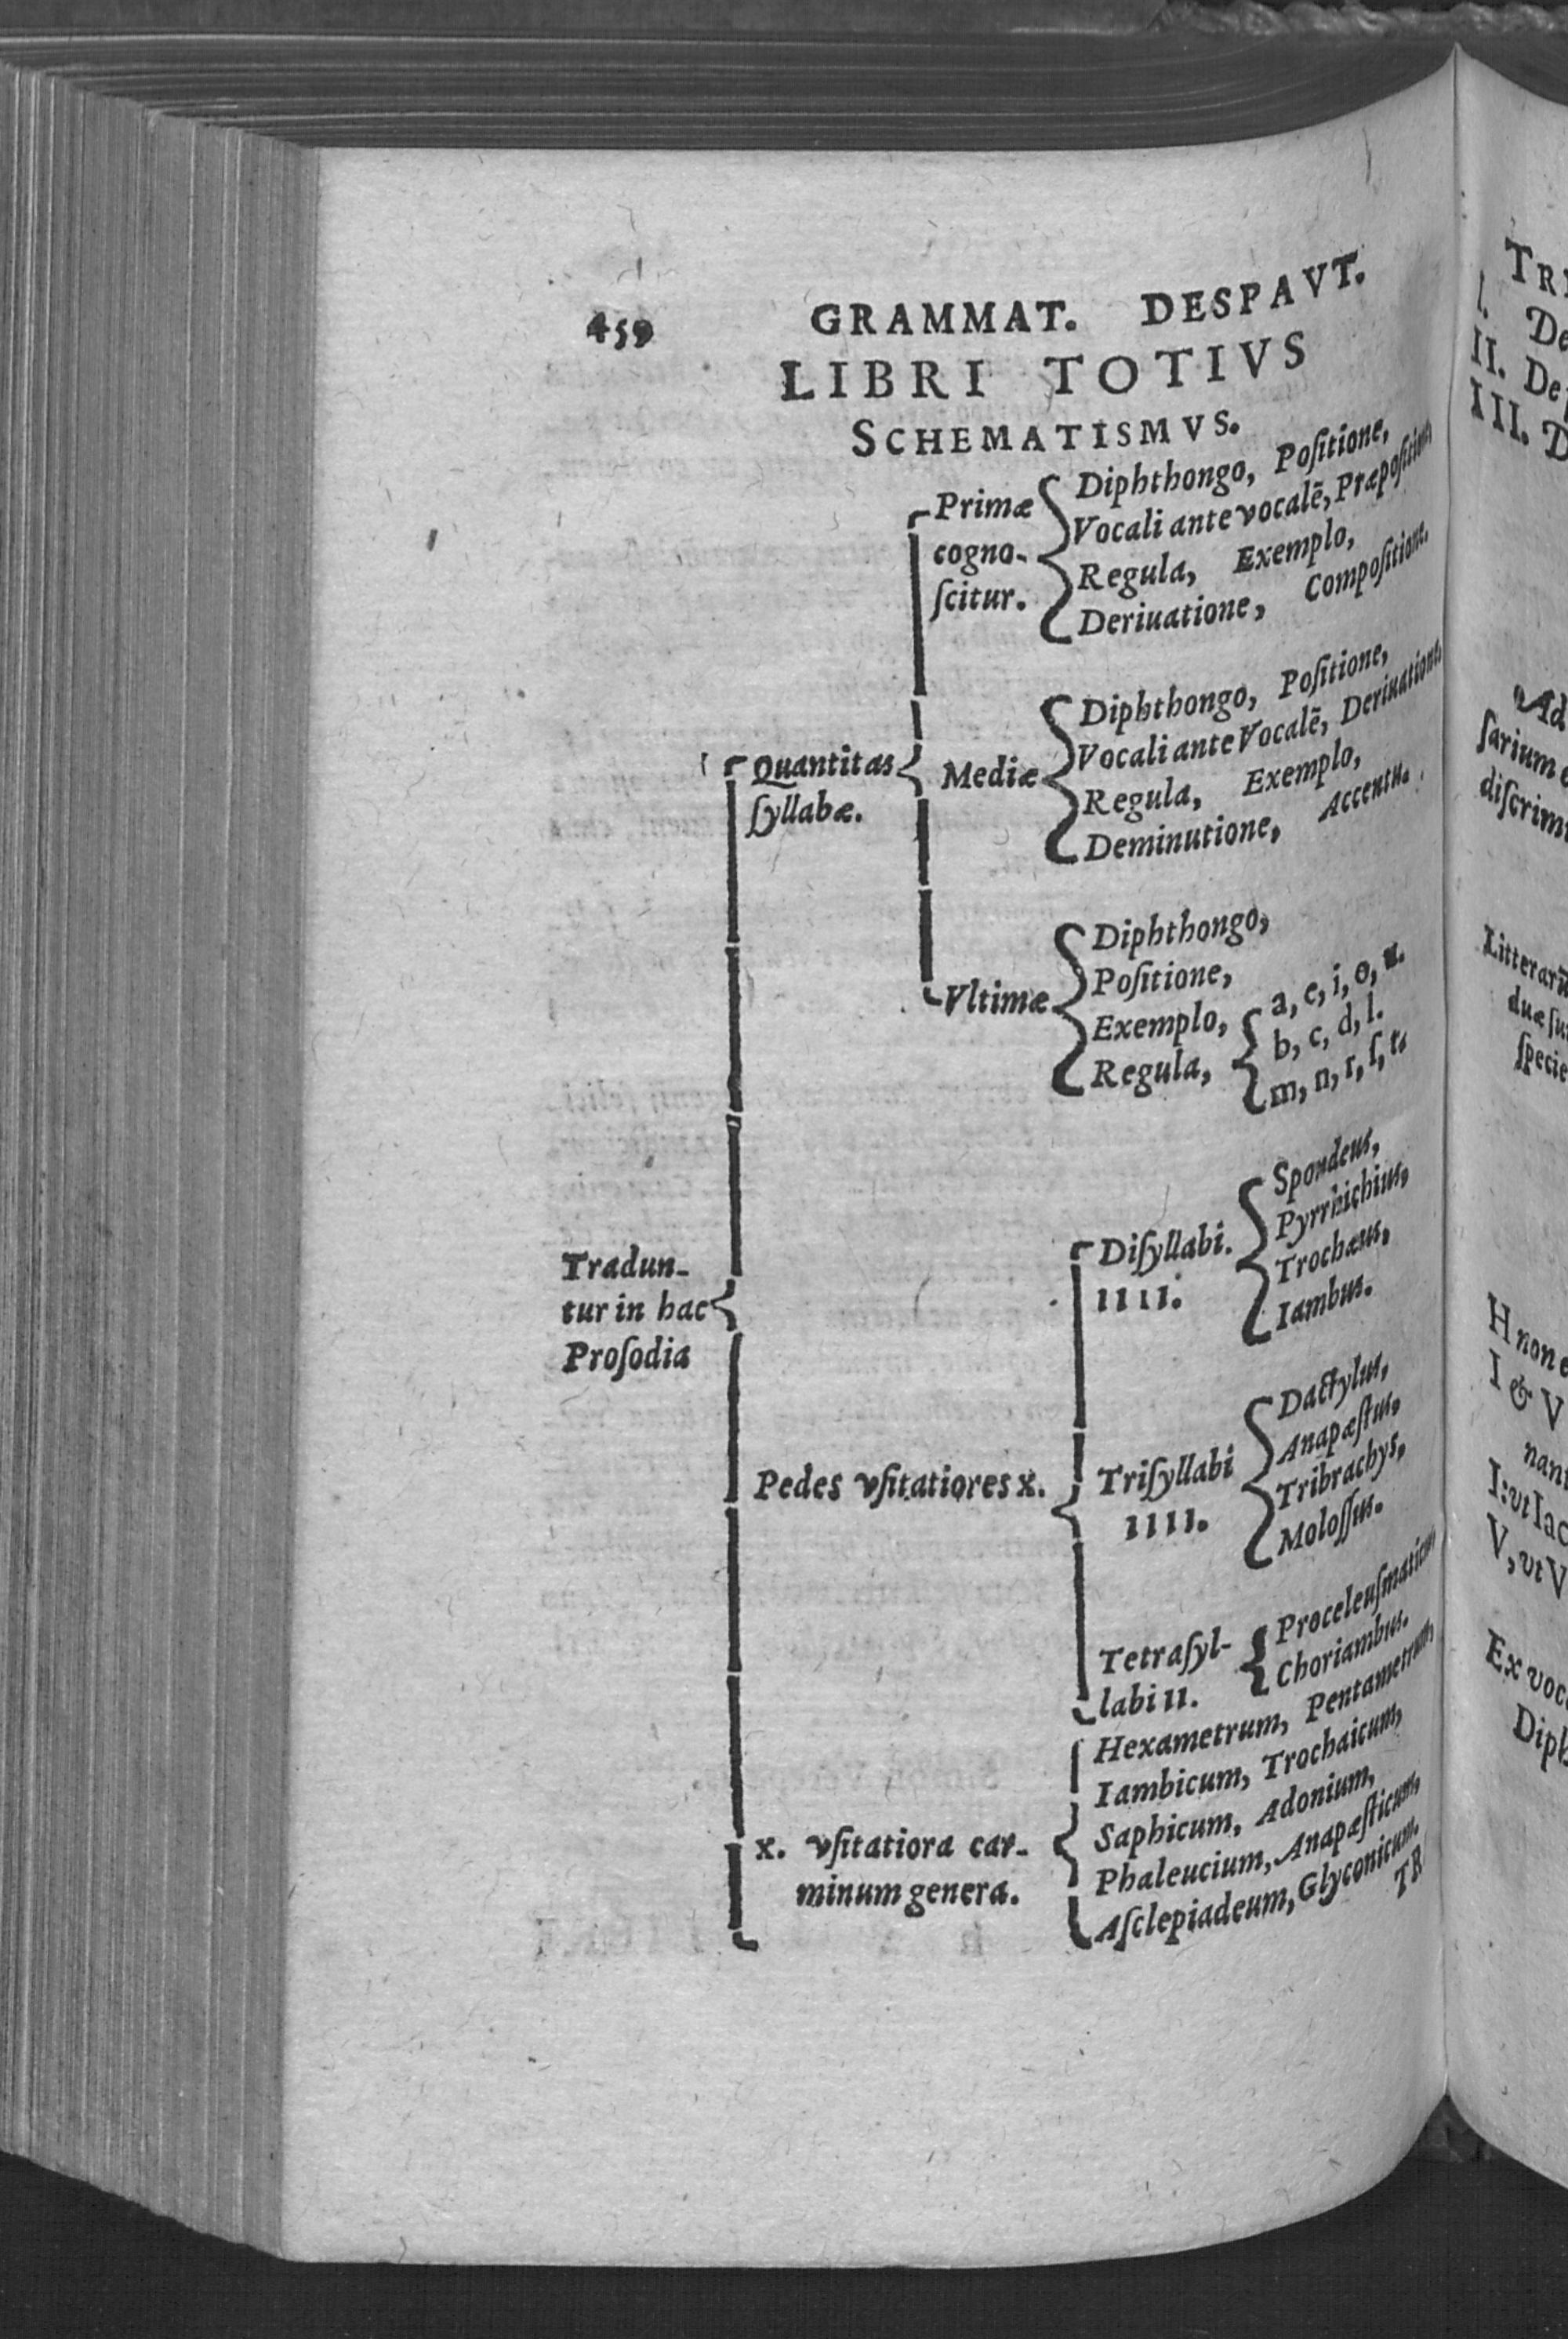 459 GRAMMAT. DESPAVT.
LIBRI TOTIVS
SCHEMATISMVS.
Tradun-
tur in hac
Proſodia
Quantitas
ſyllabæ.
Primæ
cogno-
ſcitur.
Diphthongo, Poſitione,
Vocali ante vocalẽ, Præpoſitione,
Regula, Exemplo,
Deriuatione, Compoſitione.
Mediæ
Diphthongo, Poſitione,
Vocali ante Vocalẽ, Deriuatione,
Regula, Exemplo,
Deminutione, Accentu.
Vltimæ
Diphthongo,
Poſitione,
Exemplo,
Regula,
a, e, i, o, u.
b, c, d, l.
m, n, r, ſ, t.
Pedes vſitatiores x.
Diſyllabi.
IIII.
Spondeus,
Pyrrhichius,
Trochæus,
Iambus.
Triſyllabi
IIII.
Dactylus,
Anapæſtus,
Tribrachys,
Moloſſus.
Tetraſyl-
labi II.
Proceleuſmaticus,
Choriambus.
x. vſitatiora car-
minum genera.
Hexametrum, Pentametrum,
Iambicum, Trochaicum,
Saphicum, Adonium,
Phaleucium, Anapæſticum,
Aſclepiadeum, Glyconicum.
TR
I. De
II. De
III. D
Ad
ſarium
diſcrim
Litterarũ
duæ ſu
ſpecie
H non e
I & V
nan
I: vt Iac
V, vt V
Ex voc
Diph